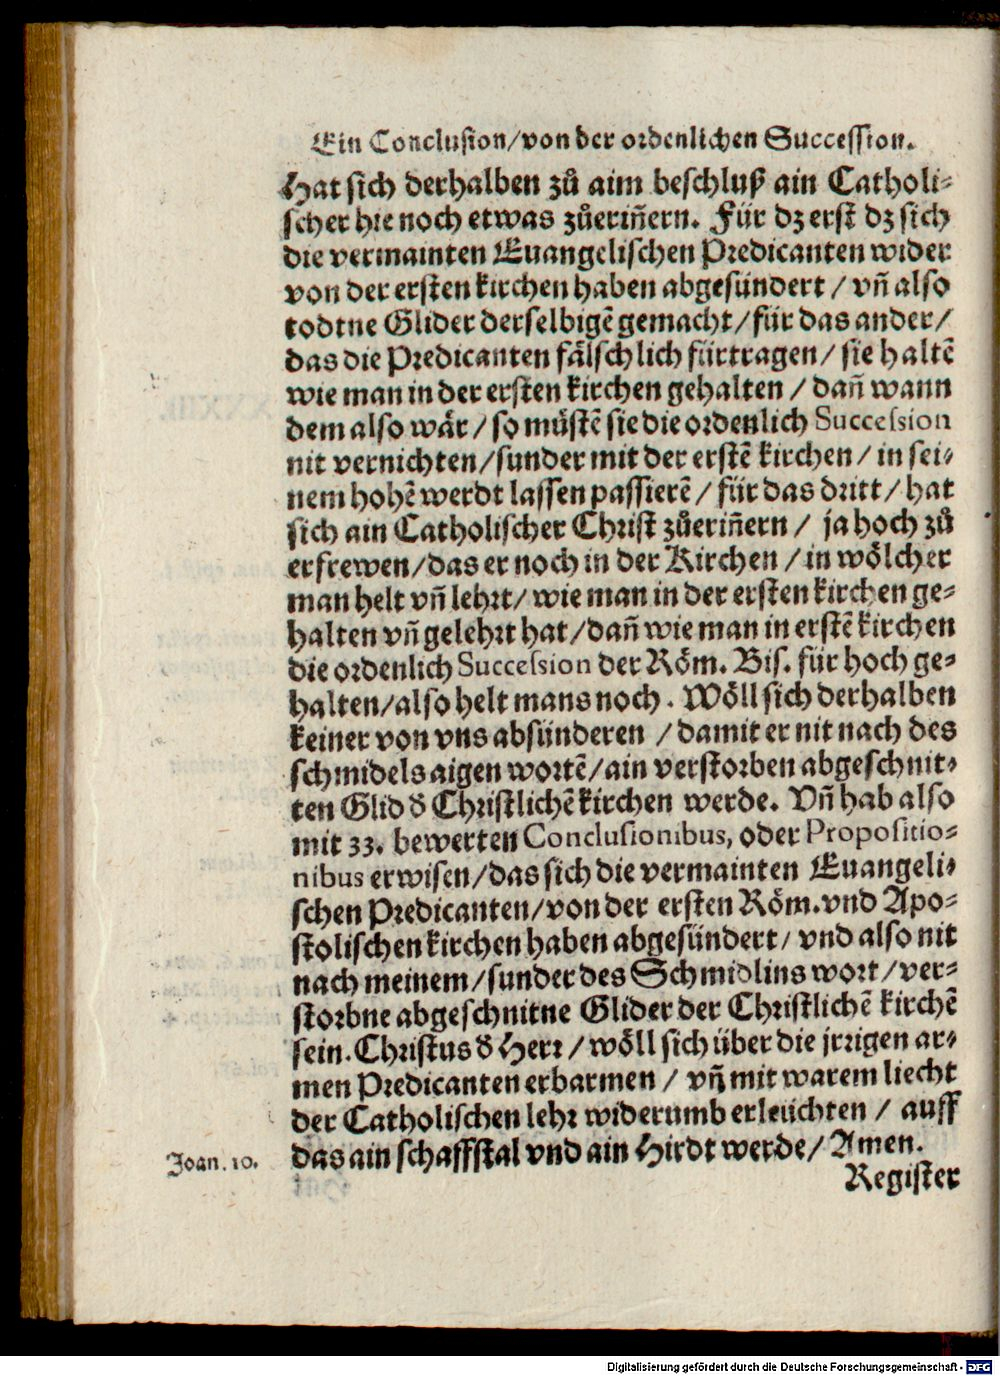 Ein Conclusion/von der ordenlichen Succession.
Hat sich derhalben zů aim beschluß ain Catholi-
scher hie noch etwas zůeriñern. Für dz erst dz sich
die vermainten Euangelischen Predicanten wider
von der ersten kirchen haben abgesündert / vñ also
todtne Glider derselbigẽ gemacht/für das ander/
das die Predicanten fälschlich fürtragen/ sie haltẽ
wie man in der ersten kirchen gehalten / dañ wann
dem also wär / so müstẽ sie die ordenlich Succession
nit vernichten/sunder mit der erstẽ kirchen / in sei-
nem hohẽ werdt lassen passierẽ / für das dritt / hat
sich ain Catholischer Christ zůeriñern / ja hoch zů
erfrewen/das er noch in der Kirchen / in wölcher
man helt vñ lehrt/ wie man in der ersten kirchen ge-
halten vñ gelehrt hat/dañ wie man in erstẽ kirchen
die ordenlich Succession der Röm. Bis. für hoch ge-
halten/also helt mans noch. Wöll sich derhalben
keiner von vns absünderen / damit er nit nach des
schmidels aigen wortẽ/ain verstorben abgeschnit-
ten Glid đ Christlichẽ kirchen werde. Vñ hab also
mit 33. bewerten Conclusionibus, oder Propositio-
nibus erwisen/das sich die vermainten Euangeli-
schen Predicanten/von der ersten Röm.vnd Apo-
stolischen kirchen haben abgesündert/ vnd also nit
nach meinem/sunder des Schmidlins wort/ver-
storbne abgeschnitne Glider der Christlichẽ kirchẽ
sein. Christus đ Herr / wöll sich über die jrrigen ar-
men Predicanten erbarmen / vñ mit warem liecht
der Catholischen lehr widerumb erleüchten / auff
das ain schaffstal vnd ain Hirdt werde/ Amen.
Joan. 10.
Register
Digitalisierung gefördert durch die Deutsche Forschungsgemeinschaft - DFG